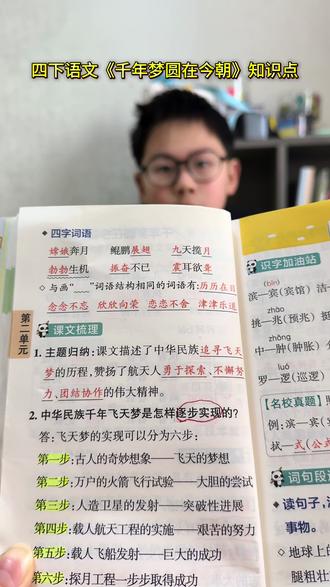 四下语文《千年梦圆在今朝》知识点
四字词语
嫦娥奔月 鲲鹏展翅 九天揽月
勃勃生机 振奋不已 震耳欲聋
◇与画“﹏﹏”词语结构相同的词语有:历历在目
念念不忘 欣欣向荣 恋恋不舍 津津乐道
第二单元
课文梳理
1. 主题归纳:课文描述了中华民族追寻飞天
梦的历程,赞扬了航天人勇于探索、不懈努
力、团结协作的伟大精神。
2. 中华民族千年飞天梦是怎样逐步实现的?
答:飞天梦的实现可以分为六步:
第一步:古人的奇妙想象——飞天的梦想
第二步:万户的火箭飞行试验——大胆的尝试
第三步:人造卫星的发射——突破性进展
第四步:载人航天工程的实施——艰苦的努力
第五步:载人飞船发射——巨大的成功
第六步:探月工程一步步取得成功
识字加油站
(bīn)
滨—宾(宾馆) 洁
zhào
挑—兆(预兆) 挺
zhǒng
中—肿(肿胀)
luó
罗—逻(巡逻)
【名校真题】
例:滨—宾(宾
拭—式(公式
词句段
读句子,
事物。
◇地球上
腿粗壮